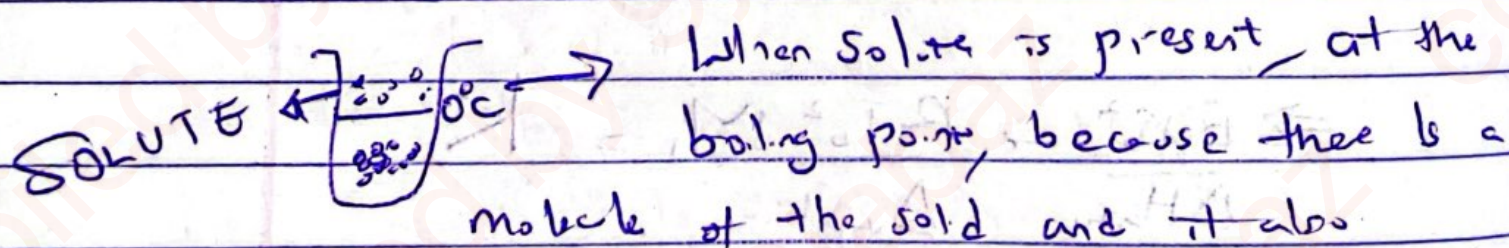 When Solute is present, at the
SOLUTE
0°C
boiling point, because there is a
molecule of the solid and it also